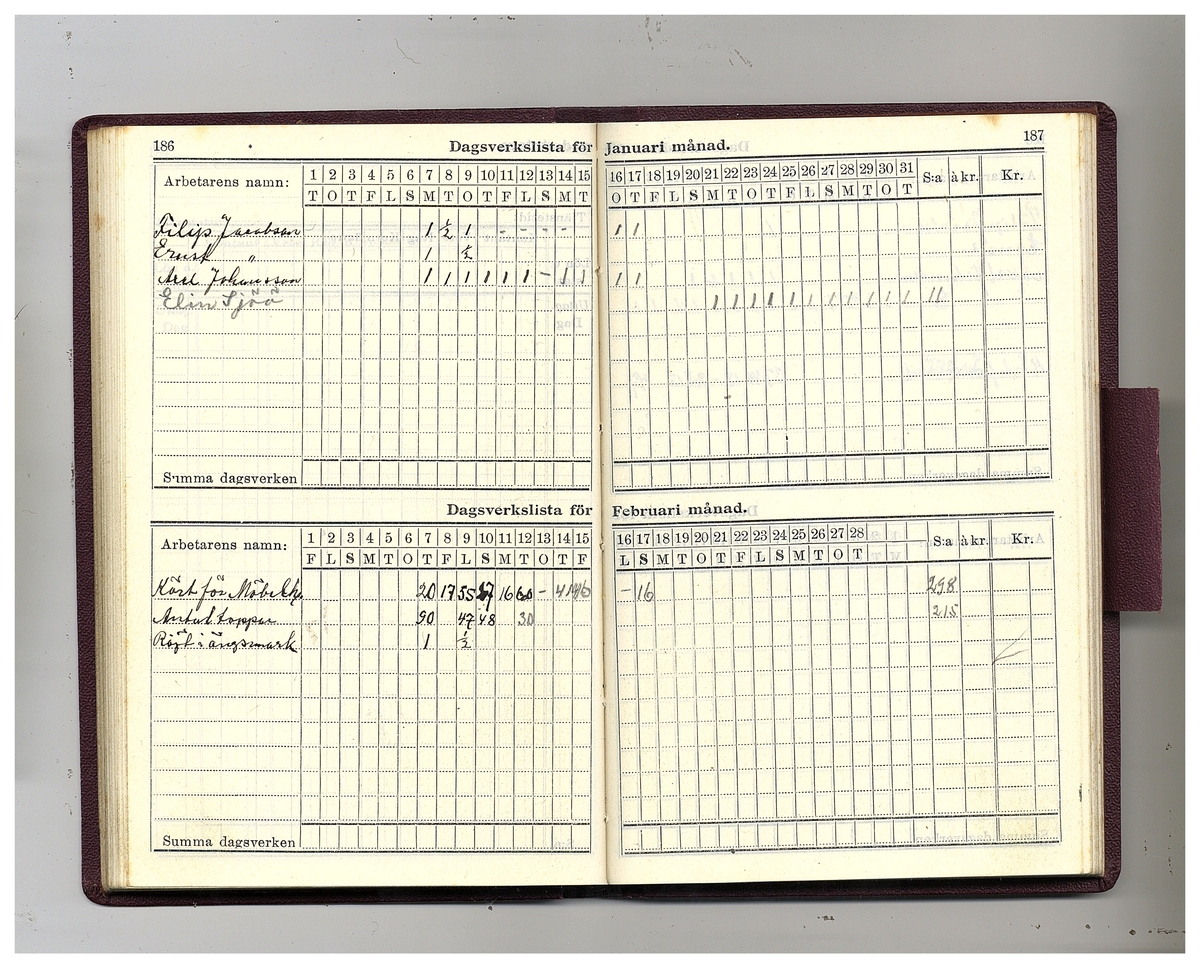 186
Dagsverkslista för Januari månad.
187
Arbetarens namn: 1 2 3 4 5 6 7 8 9 10 11 12 13 14 15 16 17 18 19 20 21 22 23 24 25 26 27 28 29 30 31 S:a à kr. Kr.
T O T F L S M T O T F L S M T O T F L S M T O T F L S M T O T
Filip Jacobson 1 ½ 1 - - - - - 1 1
Ernst " 1 ½
Axel Johansson 1 1 1 1 1 1 - 1 1 1 1
Elin Sjöö 1 1 1 1 1 1 1 1 1 1 1 11
Summa dagsverken
Dagsverkslista för Februari månad.
Arbetarens namn: 1 2 3 4 5 6 7 8 9 10 11 12 13 14 15 16 17 18 19 20 21 22 23 24 25 26 27 28 S:a à kr. Kr.
F L S M T O T F L S M T O T F L S M T O T F L S M T O T
Kört för 20 17 55 16 60 - - 16 298
Antal toppar 90 47 48 30 215
Röjt i ängsmark 1 ½
Summa dagsverken